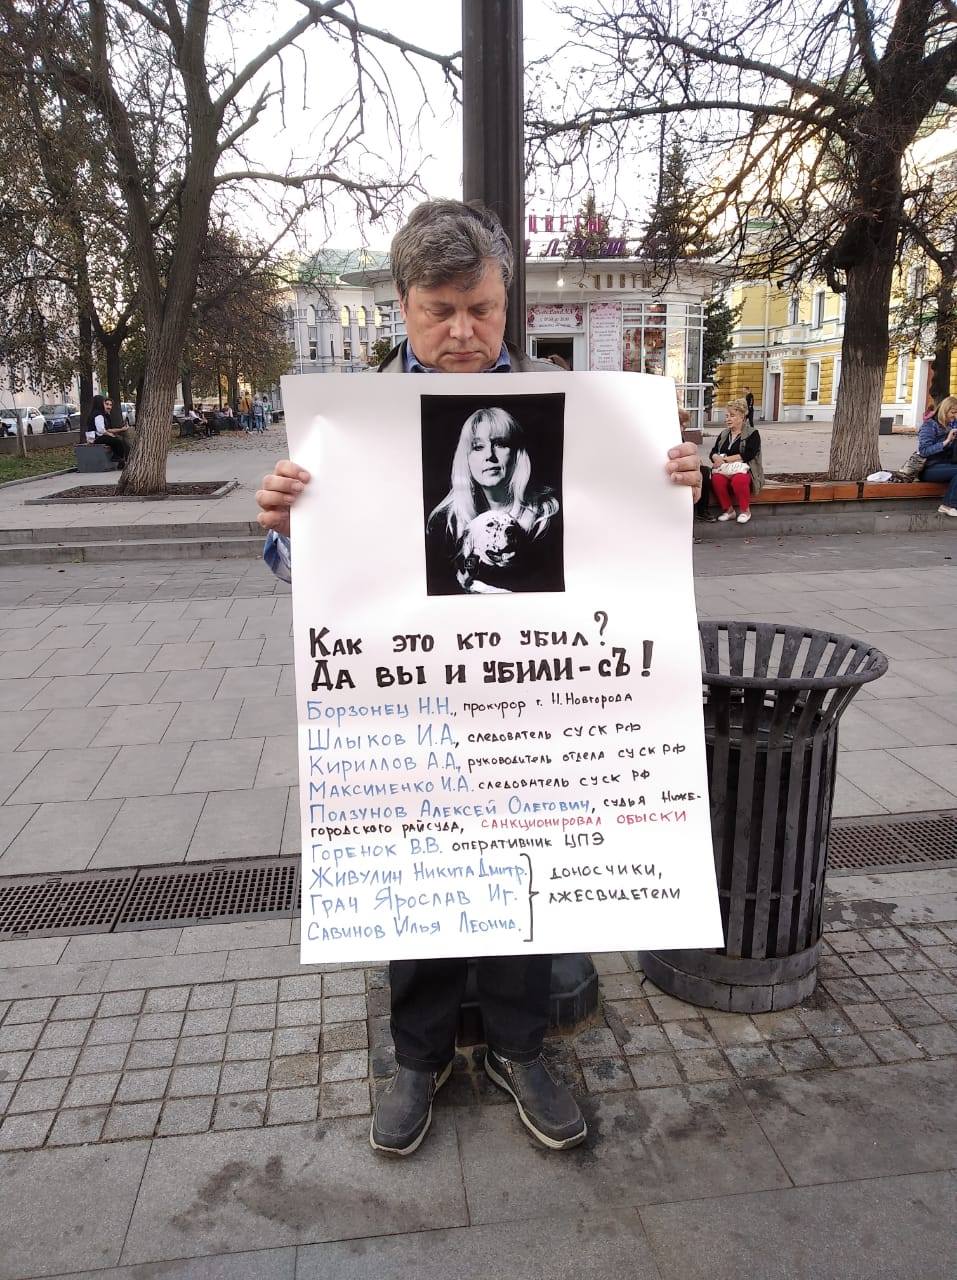 ЦВЕТЫ
Как это кто убил?
Да вы и убили-съ!
Борзонец Н.Н., прокурор г. Н. Новгорода
Шлыков И.А., следователь СУ СК РФ
Кириллов А.А., руководитель отдела СУ СК РФ
Максименко И.А. следователь СУ СК РФ
Ползунов Алексей Олегович, судья Ниже-
городского райсуда, санкционировал обыски
Горенок В.В. оперативник ЦПЭ
Живулин Никита Дмитр.
Грач Ярослав Иг.
Савинов Илья Леонид.
доносчики,
лжесвидетели